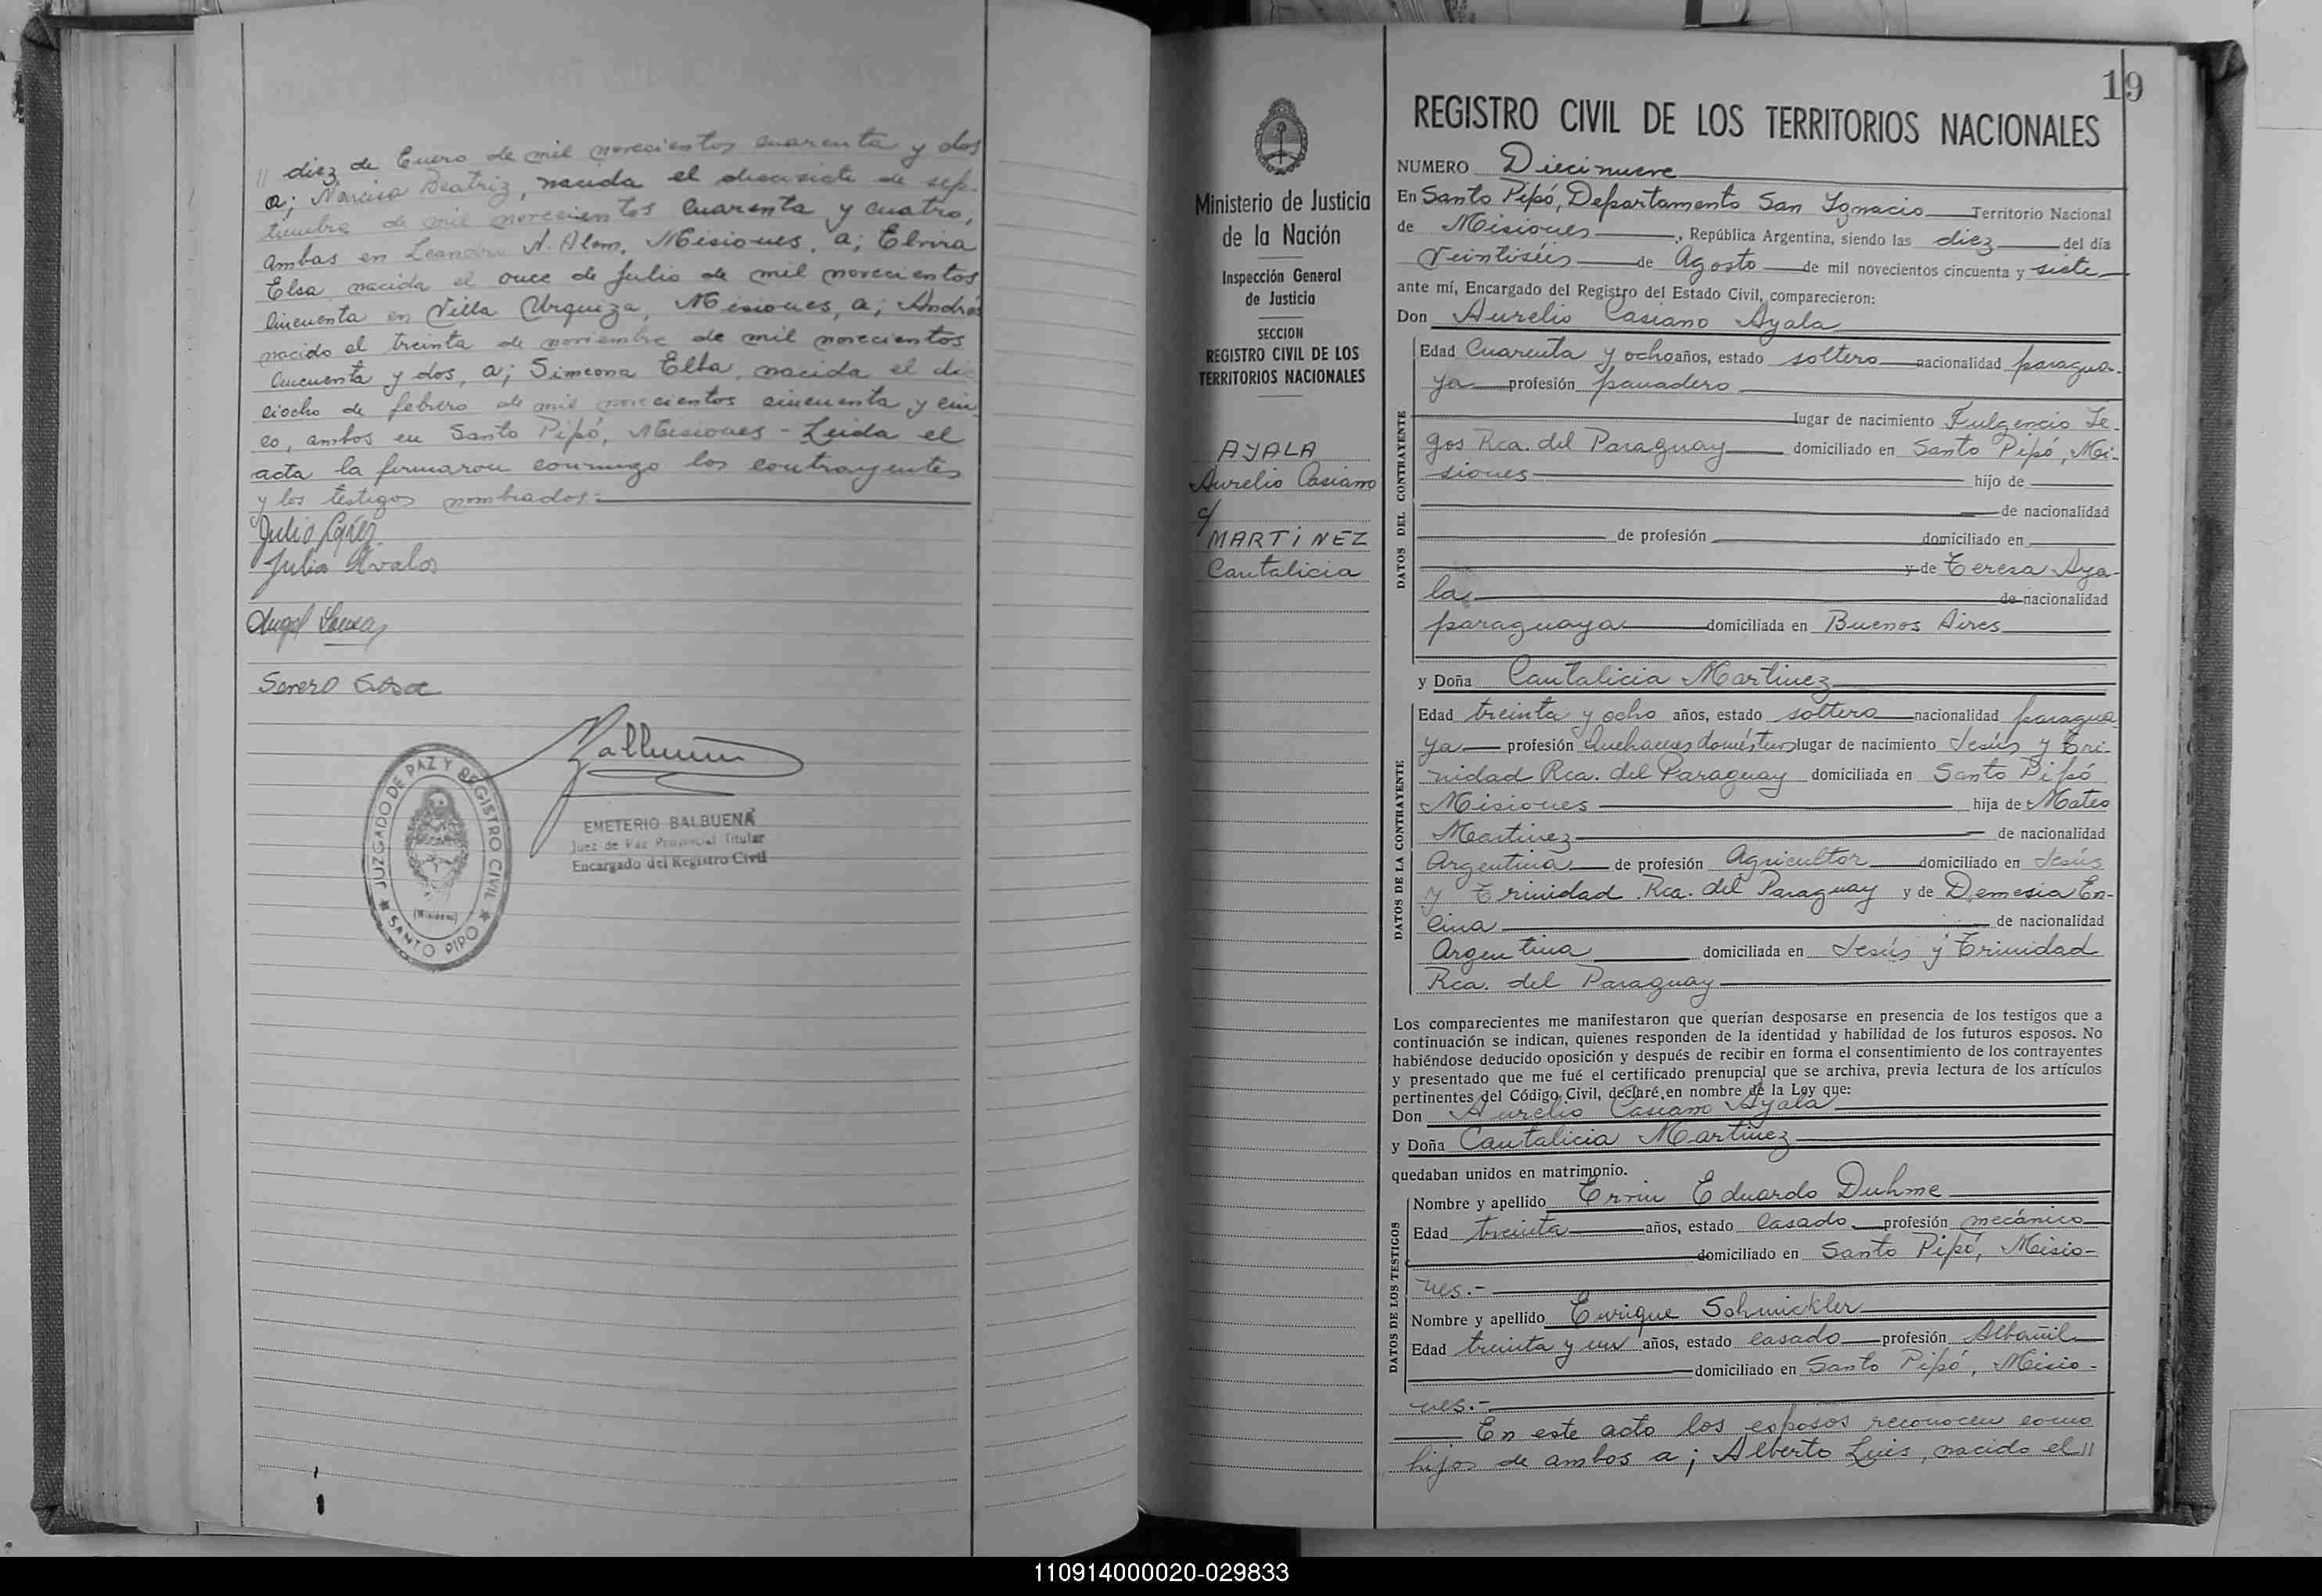 // diez de Enero de mil novecientos cuarenta y dos
a; Narcisa Beatriz, nacida el diecisiete de sep-
tiembre de mil novecientos cuarenta y cuatro,
ambas en Leandro N. Alem, Misiones, a; Elvira
Elsa nacida el once de Julio de mil novecientos
cincuenta en Villa Urquiza, Misiones, a; Andrés
nacido el treinta de noviembre de mil novecientos
cincuenta y dos, a; Simeona Elba, nacida el die
ciocho de febrero de mil novecientos cincuenta y cin
co, ambos en Santo Pipó, Misiones - Leida el
acta la firmaron conmigo los contrayentes
y los testigos nombrados.-
Julio
Julia Avalos
Angel
Severo Sosa
Balbuena
JUZGADO DE PAZ Y REGISTRO CIVIL
(Misiones)
SANTO PIPO
EMETERIO BALBUENA
Juez de Paz Provincial Titular
Encargado del Registro Civil
Ministerio de Justicia
de la Nación
Inspección General
de Justicia
SECCION
REGISTRO CIVIL DE LOS
TERRITORIOS NACIONALES
AYALA
Aurelio Casiano
c/
MARTiNEZ
Cantalicia
19
REGISTRO CIVIL DE LOS TERRITORIOS NACIONALES
NUMERO Diecinueve
En Santo Pipó, Departamento San Ignacio Territorio Nacional
de Misiones, República Argentina, siendo las diez del día
Veintiséis de Agosto de mil novecientos cincuenta y siete
ante mí, Encargado del Registro del Estado Civil, comparecieron:
Don Aurelio Casiano Ayala
DATOS DEL CONTRAYENTE
Edad Cuarenta y ocho años, estado soltero nacionalidad paragua-
ya profesión panadero
lugar de nacimiento Fulgencio Ye-
gos Rca. del Paraguay domiciliado en Santo Pipó, Mi-
siones hijo de
de nacionalidad
de profesión domiciliado en
y de Teresa Aya-
la de nacionalidad
paraguaya domiciliada en Buenos Aires
y Doña Cantalicia Martinez
DATOS DE LA CONTRAYENTE
Edad treinta y ocho años, estado soltera nacionalidad paragua
ya profesión Quehaceres domésticos lugar de nacimiento Jesús y Tri-
nidad Rca. del Paraguay domiciliada en Santo Pipó
Misiones hija de Mateo
Martinez de nacionalidad
Argentina de profesión Agricultor domiciliado en Jesús
y Trinidad Rca. del Paraguay y de Demesia En-
cina de nacionalidad
Argentina domiciliada en Jesús y Trinidad
Rca. del Paraguay
Los comparecientes me manifestaron que querían desposarse en presencia de los testigos que a
continuación se indican, quienes responden de la identidad y habilidad de los futuros esposos. No
habiéndose deducido oposición y después de recibir en forma el consentimiento de los contrayentes
y presentado que me fué el certificado prenupcial que se archiva, previa lectura de los artículos
pertinentes del Código Civil, declaré, en nombre de la Ley que:
Don Aurelio Casiano Ayala
y Doña Cantalicia Martinez
quedaban unidos en matrimonio.
DATOS DE LOS TESTIGOS
Nombre y apellido Ervin Eduardo Duhme
Edad treinta años, estado casado profesión mecánico
domiciliado en Santo Pipó, Misio-
nes.-
Nombre y apellido Enrique Schmickler
Edad treinta y un años, estado casado profesión Albañil
domiciliado en Santo Pipó, Misio-
nes.-
En este acto los esposos reconocen como
hijos de ambos a; Alberto Luis, nacido el //
110914000020-029833